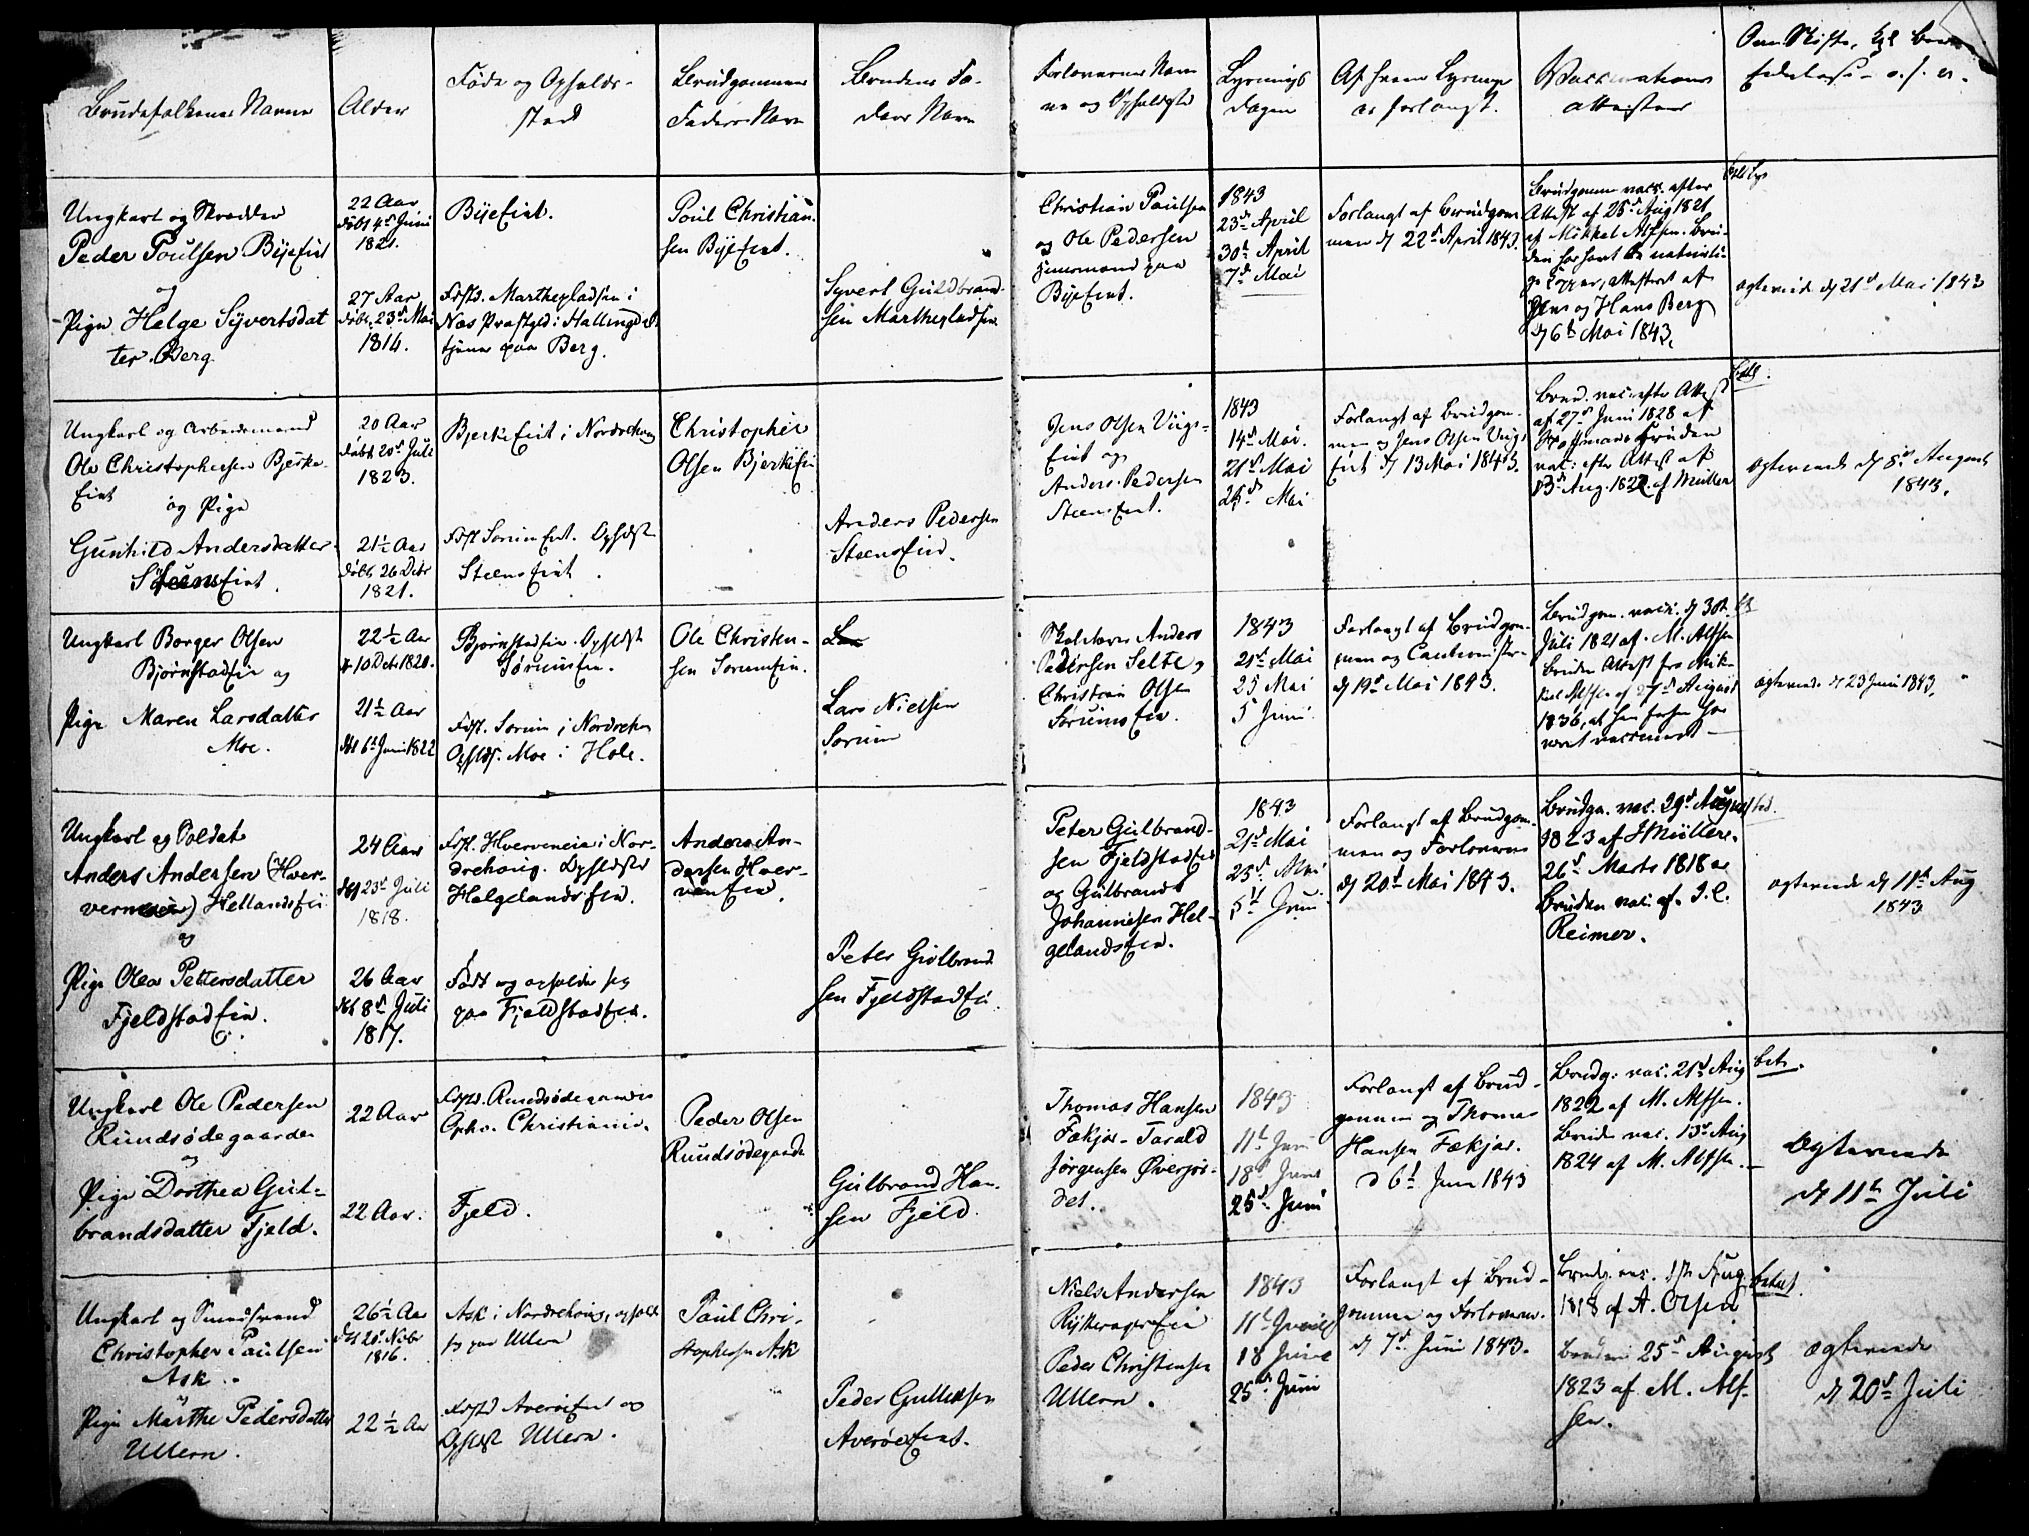 Brudefolkenes Navne
Alder
Føde og Opholds-
sted
Brudgommens
Faders Navn
Brudens Fa-
ders Navn
Forlovernes Nav
ne og Opholdsted
Lysnings
dagen
Af hvem Lysninge
er forlangt.
Vaccinations
attester
Om Skifte,
Ungkarl og Skrædder
Peder Poulsen ByeEiet
og
Pige Helge Syvertsdat
ter Berg
22 Aar
døbt 4de Juni
1821.
27 Aar
døbt 23de Mai
1814.
ByeEiet.
Fødst. Marthepladsen i
Næs Præstgjeld i Hallingd.
tjener paa Berg.
Poul Christian
sen ByeEiet.
Syvert Guldbrand-
sen Marthepladsen
Christian Paulsen
og Ole Pedersen
Huusmænd paa
ByeEiet.
1843
23de April
30te April
7de Mai
Forlangt af Brudgom
men d 22de April 1843.
Brudgommen vacc. efter
Attest af 25de Aug 1821
af Mikkel Alfsen. Bru-
den har havt de naturli-
ge Kopper, attesteret af
og Hans Berg
d 6te Mai 1843.
Ægteviede d 21de Mai 1843
Ungkarl og Arbeidsmand
Ole Christophersen Bjerke-
Eiet
og Pige
Gunhild Andersdatter
SteensEiet.
20 Aar
døbt 20de Juli
1823.
21½ Aar
døbt 26 Decbr
1821.
BjerkeEiet i Norderhoug
Født SørumEiet. Opholdst
SteensEiet.
Christopher
Olsen BjerkeEie
Anders Pedersen
SteensEie.
Jens Olsen Viigs-
Eiet og
Anders Pedersen
SteensEiet.
1843
14de Mai.
21de Mai
25de Mai
Forlangt af Brudgom-
men og Jens Olsen Viigs
Eiet d 13 Mai 1843.
Brud. vac. efter Attest
af 27de Juni 1828 af
Bruden
vac: efter Attest af
13de Aug. 1822. af Müller
Ægteviede d 8de August
1843.
Ungkarl Borger Olsen
BjørnstadEie og
Pige Maren Larsdatter
Moe.
22½ Aar
10 Dec 1820.
21½ Aar
døbt 6te Juni 1822
BjørnstadEie. Opholdst
SørumEie.
Født. Sørum i Norderhou
Opholdst. Moe i Hole.
Ole Christen-
sen SørumEie.
Lars Nielsen
Sørum
Skolelærer Anders
Pedersen Selte,
Christian Olsen
SørumsEie.
1843
21de Mai
25 Mai
5 Juni
Forlangt af Brudgom-
men og Cautionister
d 19de Mai 1843.
Brudgom. vacc. d 30te
Juli 1821 af M. Alfsen
Bruden Attest fra Mik-
kel Alfsen af 27de August
1836, at hun forhen har
været vaccineret
Ægteviede d 23 Juni 1843.
Ungkarl og Soldat
Anders Andersen (Hver-
) HellandsEie
og
Pige Olea Pettersdatter
FjeldstadEie.
24 Aar
døbt 23de Juli
1818.
26 Aar
døbt 8de Juli
1817.
Født. Hverveneie i Nor-
derhoug. Opholdsted
HelgelandsEie.
Født og opholder sig
paa FjeldstadEie.
Anders An-
dersen Hver-
venEie.
Peter Gulbrand
sen FjeldstadEie
Peter Gulbrand-
sen FjeldstadEie
og Gulbrand
Johannesen Hel-
gelandsEie.
1843
21de Mai
25de Mai
5te Juni
Forlangt af Brudgom-
men og Forloverne
d 20de Mai 1843.
Brudg. vac. 29de August
1823 af J Müller.
26de Marts 1818
Bruden vac. af J. C.
Reimer.
Ægteviede d 11te Aug
1843
Ungkarl Ole Pedersen
Rundsødegaarden
og
Pige Dorthea Gul-
brandsdatter Fjeld.
22 Aar
22 Aar.
Fødst. Rundsødegaarden
Opho. Christiania.
Fjeld.
Peder Olsen
Rundsødegaarde
Gulbrand Han-
sen Fjeld.
Thomas Hansen
Fækjær - Tarald
Jørgensen Øverjor-
det.
1843
11te Juni
18de Juni
25de Juni
Forlangt af Brud-
gommen og Thomas
Hansen Fækjær.
d 6te Juni 1843
Brudg: vac. 21de Aug
1822 af M. Alfsen.
Bruden vac. 13de Aug
1824 af M. Alfsen.
bet.
Ægteviede
d 11te Juli
Ungkarl og
Christopher Paulsen
Ask.
og
Pige Marthe Pedersdatter
Ullern.
26½ Aar
døbt 20de Novbr
1816.
22½ Aar
Ask i Norderhoug, ophold
sig paa Ullern
Født AverøeEiet og
Opholdst Ullern.
Paul Chri-
stophersen Ask
Peder Gulliksen
AverøeEiet.
Niels Andersen
RytteragerEie
Peder Christensen
Ullern.
1843
11te Juni
18 Juni
25de Juni
Forlangt af Brud-
gommen og Forloveren
d 7de Juni 1843.
Brudg. vac. 1ste Aug
1818 af A. Olsen
Bruden 25de August
1823 af M. Alf-
sen.
betalt.
Ægteviede
d 20de Juli